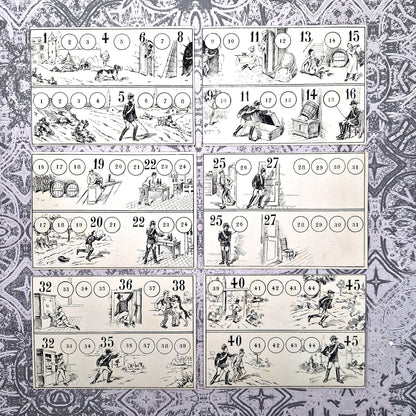 1 2 3 4 5 6 7 8
1 2 3 4 5 6 7 8
9 10 11 12 13 14 15
9 10 11 12 13 14 15 16
16 17 18 19 20 21 22 23 24
16 17 18 19 20 21 22 23 24
25 26 27 28 29 30 31
25 26 27 28 29 30 31
32 33 34 35 36 37 38
32 33 34 35 36 37 38 39
39 40 41 42 43 44 45
40 41 42 43 44 45